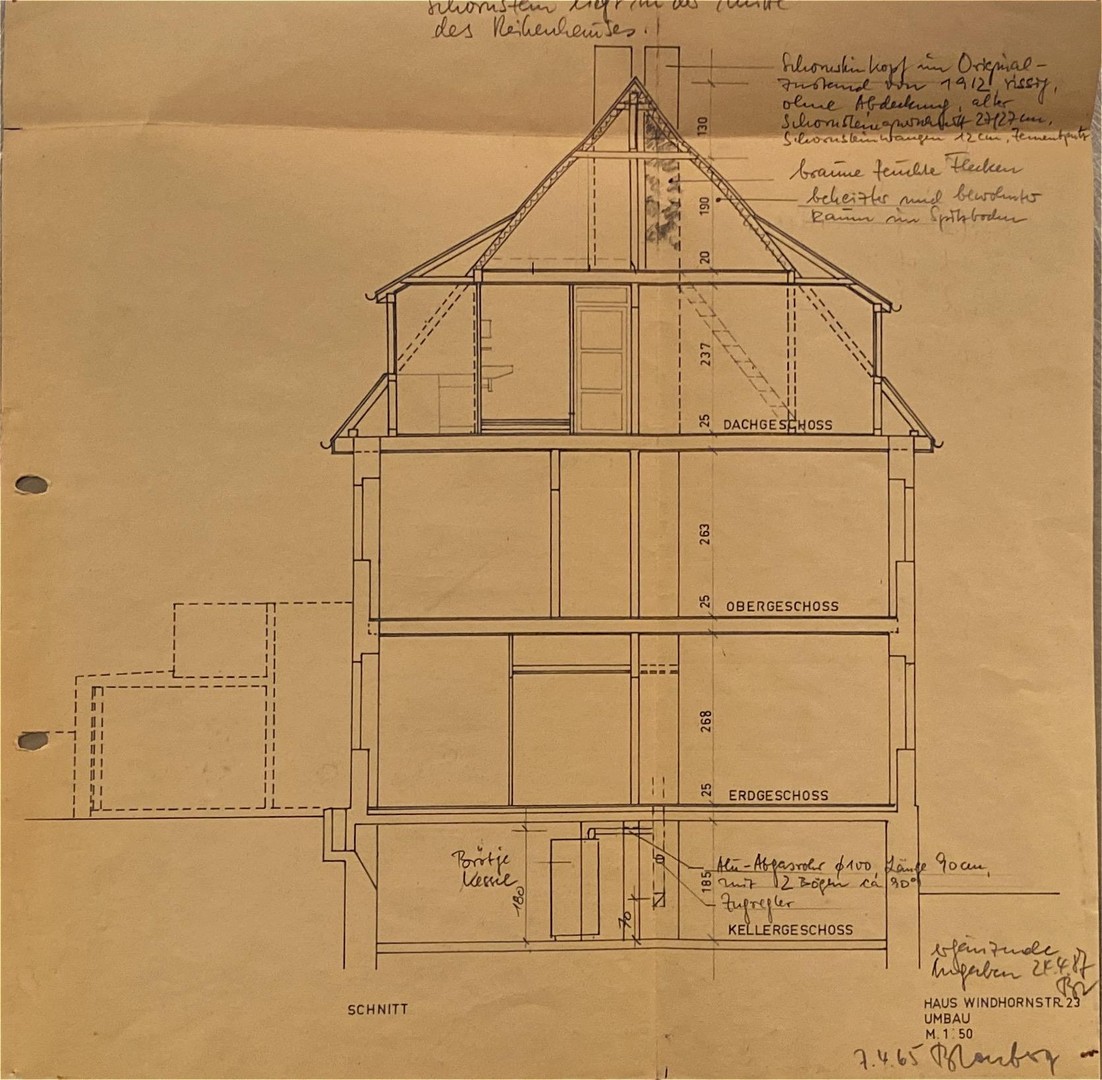 Schornstein liegt in der Mitte
des Reihenhauses.
Schornsteinkopf im Original-
zustand von 1912, rissig,
ohne Abdeckung, alter
Schornsteinquerschnitt 27/27cm,
Schornsteinwangen 12cm, Zementputz
braune feuchte Flecken
beheizter und bewohnter
Raum im Spitzboden
130
190
20
237
25
DACHGESCHOSS
263
25
OBERGESCHOSS
268
25
ERDGESCHOSS
Brötje
Kessel
180
70
185
Alu-Abgasrohr ϕ100, Länge 90cm,
mit 2 Bögen ca 90°
Zugregler
KELLERGESCHOSS
ergänzende
Angaben 24.4.87
SCHNITT
HAUS WINDHORNSTR. 23
UMBAU
M. 1:50
7.4.65